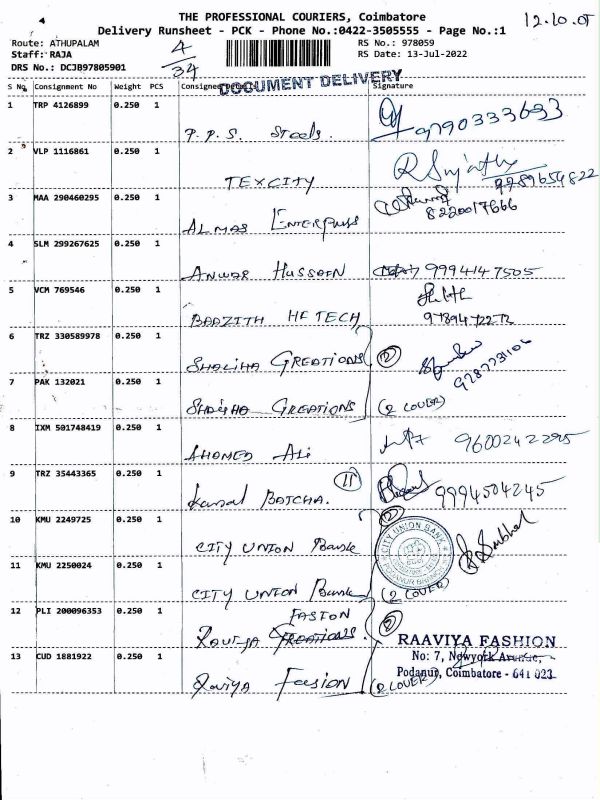 THE PROFESSIONAL COURIERS, Coimbatore
12.10.05
Delivery Runsheet - PCK - Phone No.:0422-3505555 - Page No.:1
Route: ATHUPALAM
Staff: RAJA
DRS No.: DCJB97805901
4/34
RS No.: 978059
RS Date: 13-Jul-2022
DOCUMENT DELIVERY
S No Consignment No Weight PCS Consignee Signature
1 TRP 4126899 0.250 1 P.P.S. Steels. 9790333693
2 VLP 1116861 0.250 1 TEXCITY
3 MAA 290460295 0.250 1 ALMAS 8220017666
4 SLM 299267625 0.250 1 ANWAR HUSSAIN 9994147505
5 VCM 769546 0.250 1 HI TECH
6 TRZ 330589978 0.250 1 SHALIHA CREATIONS (2)
7 PAK 132021 0.250 1 CREATIONS (2 COVER)
8 IXM 501748419 0.250 1 AHAMED Ali 9600242295
9 TRZ 35443365 0.250 1 Kamal BATCHA. (11) 9994504245
10 KMU 2249725 0.250 1 CITY UNION Bank (2)
CITY UNION BANK
11 KMU 2250024 0.250 1 CITY UNION Bank (2 COVER)
12 PLI 200096353 0.250 1 FASION (2)
RAAVIYA FASHION
No: 7, Newyork Avenue,
Podanur, Coimbatore - 641 023.
13 CUD 1881922 0.250 1 Raviya Fasion (2 COVER)